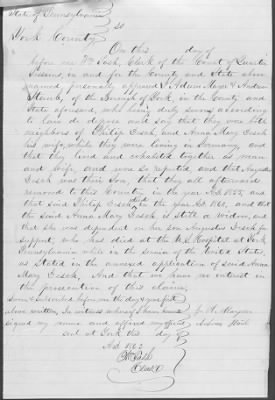 State of Pennsylvania
York County } ss
On this day of
before me Wm Lash, Clerk of the Court of Quarter
Sessions, in and for the County and State afore
named, personally appeared Adam Mayer & Andrew
of the Borough of York, in the County and
State aforesaid, who being duly sworn according
to law do depose and say that they were both
neighbors of Philip Eseck and Anna Mary Eseck
his wife, while they were living in Germany, and
that they lived and cohabited together as man
and wife, and were so reputed and that Augustus
Eseck was their son, that they all afterwards
removed to this Country in the year A.D. 1855, and
that said Philip Eseck died in the year A.D. 1860, and that
the said Anna Mary Eseck is still a widow, and
that she was dependent on her son Augustus Eseck for
support, who has died at the U.S. Hospital at York
Pennsylvania while in the service of the United States,
as stated in the annexed application of said Anna
Mary Eseck, And that we have no interest in
the prosecution of this claim,
sworn & subscribed before me the day & year first
above written, In witness whereof I have hereunto
signed my name and affixed my official
seal at York this day of
A.D. 1863
Clerk